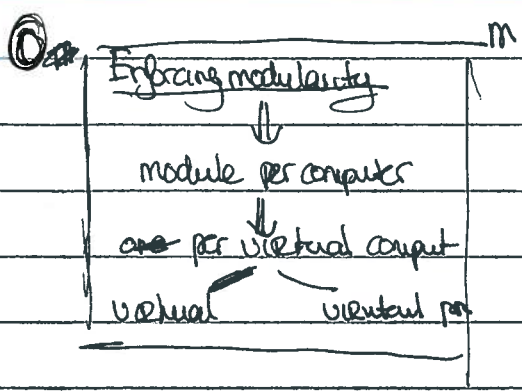 Enforcing modularity
module per computer
per virtual comput
virtual